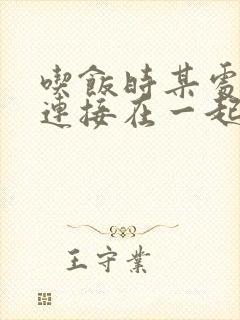 喫飯時某處
連接在一起
王守業